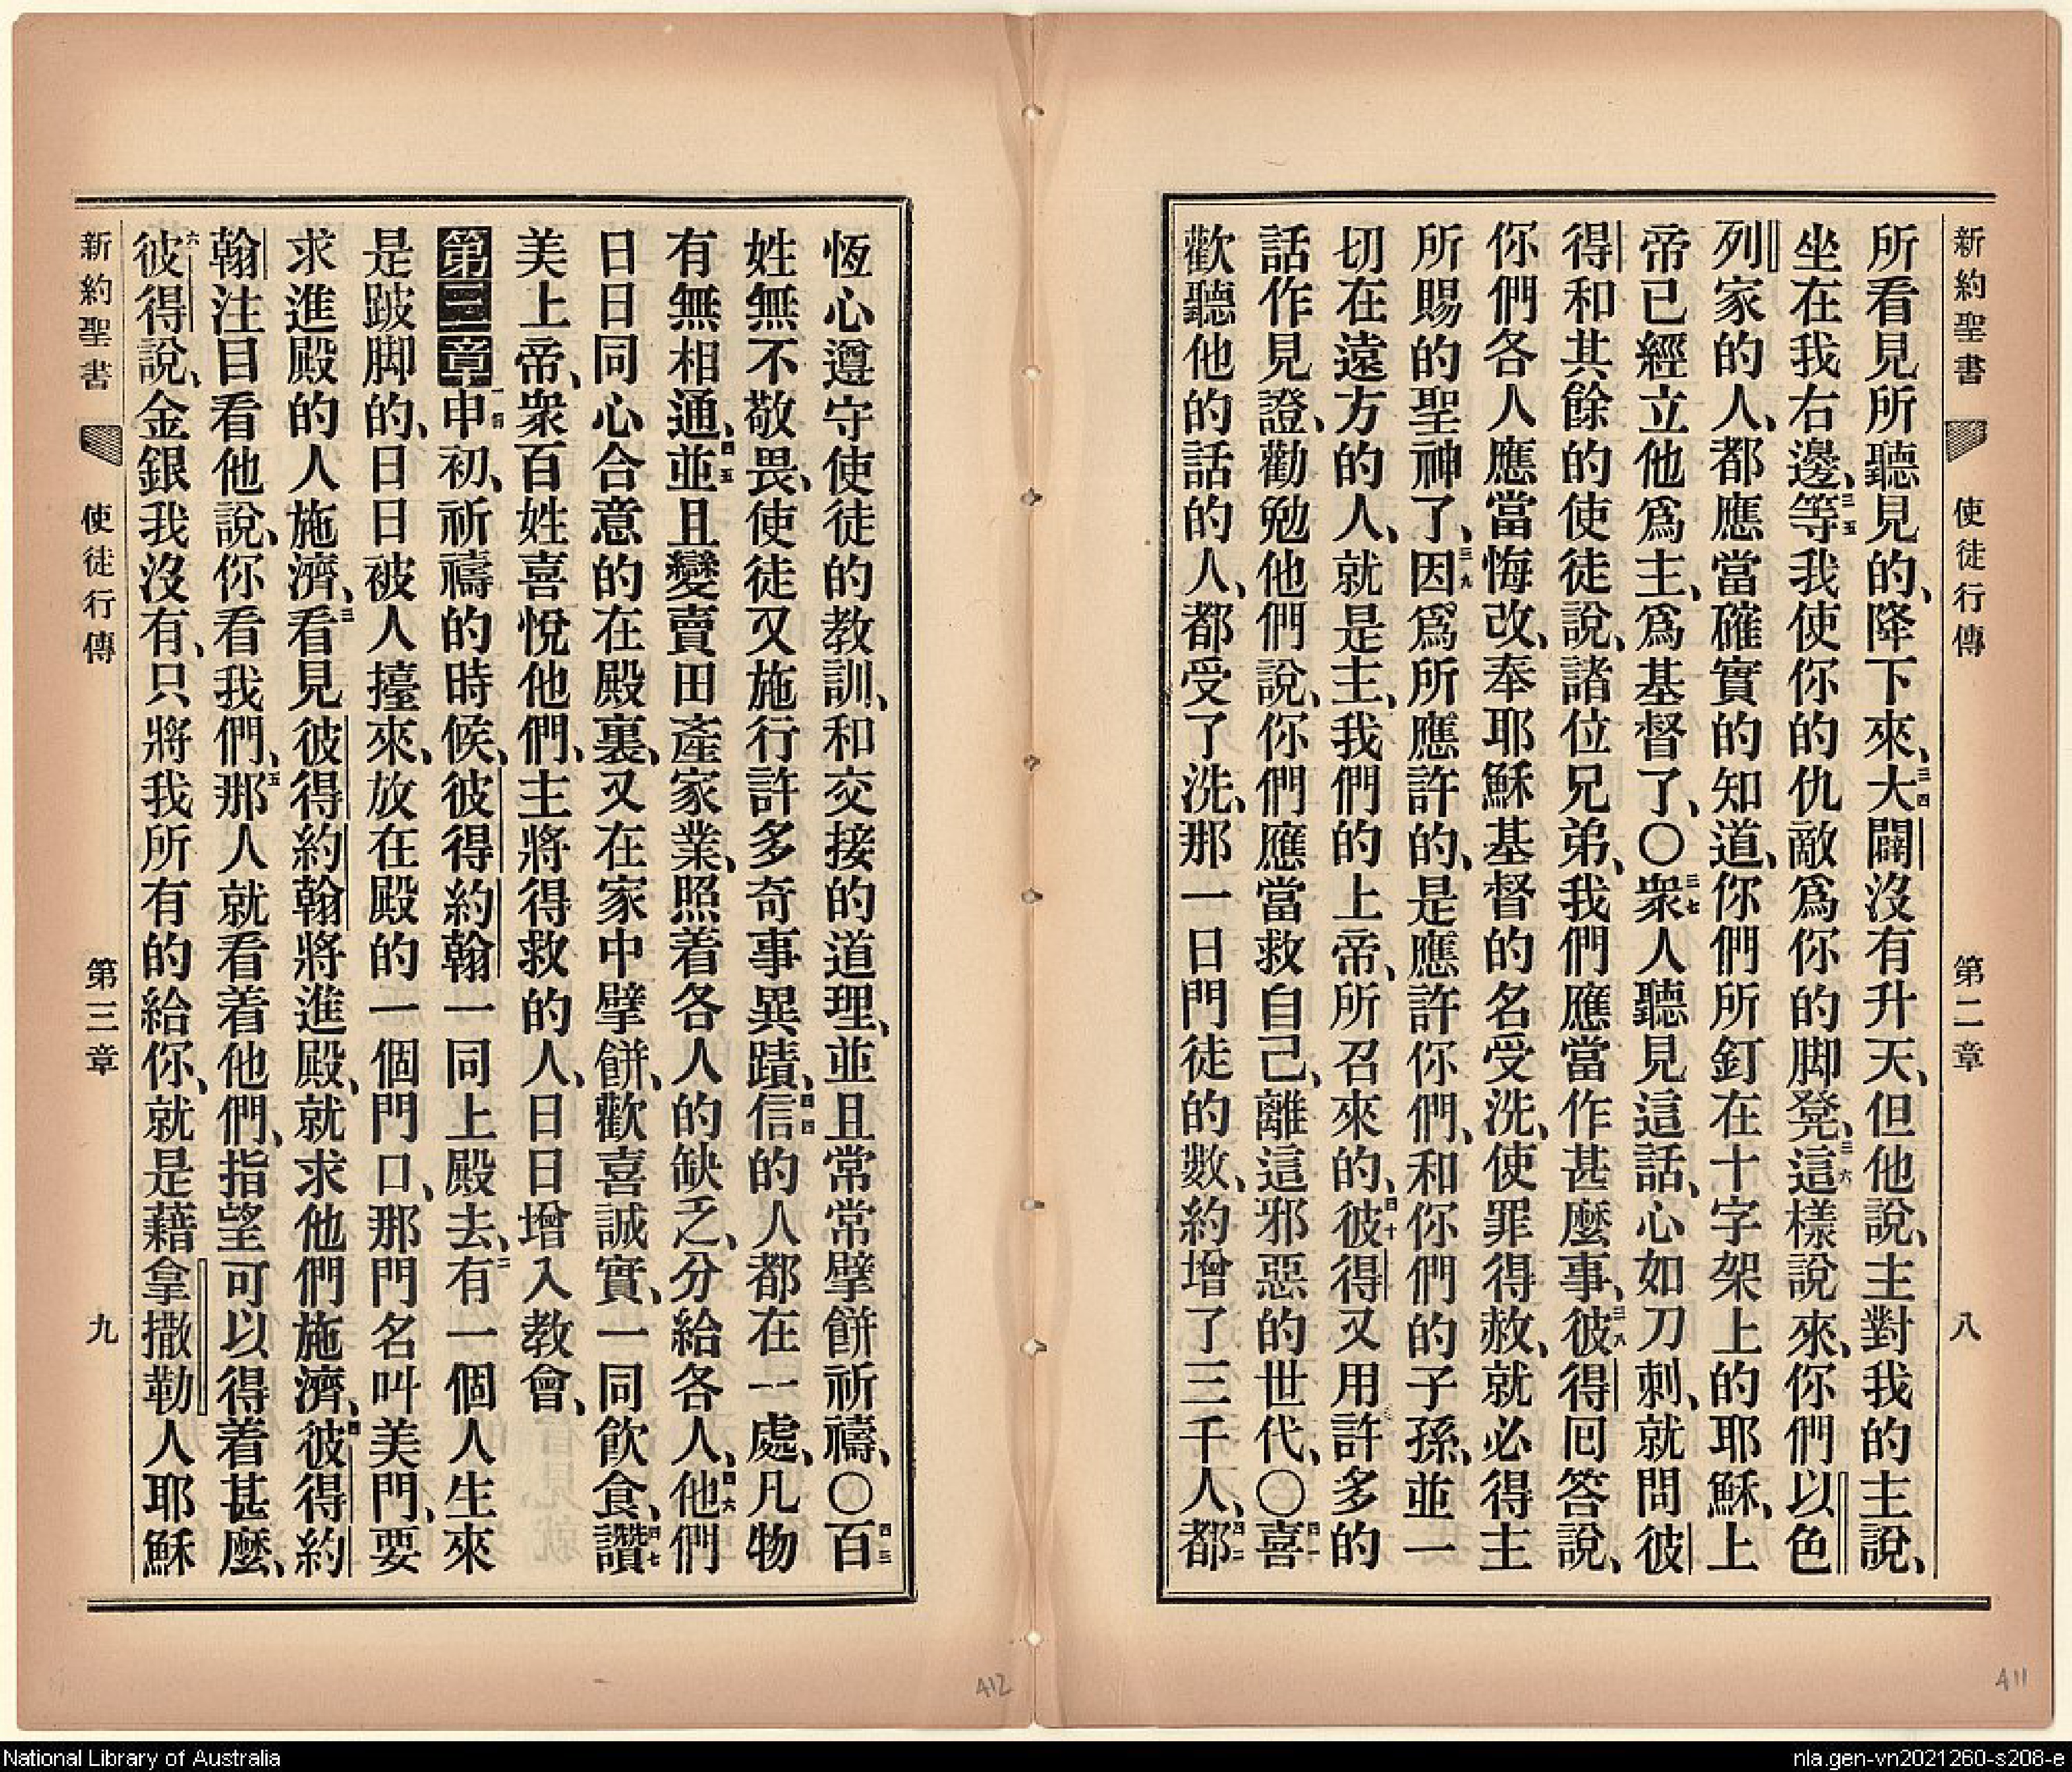 新約聖書 使徒行傳 第二章 八
所看見所聽見的、降下來、三四大闢沒有升天、但他說、主對我的主說、
坐在我右邊、三五等我使你的仇敵爲你的脚凳、三六這樣說來、你們以色
列家的人、都應當確實的知道、你們所釘在十字架上的耶穌、上
帝已經立他爲主、爲基督了、〇三七衆人聽見這話、心如刀刺、就問彼
得和其餘的使徒說、諸位兄弟、我們應當作甚麼事、三八彼得回答說、
你們各人應當悔改、奉耶穌基督的名受洗、使罪得赦、就必得主
所賜的聖神了、三九因爲所應許的、是應許你們、和你們的子孫、並一
切在遠方的人、就是主、我們的上帝、所召來的、四十彼得又用許多的
話作見證、勸勉他們說、你們應當救自己、離這邪惡的世代、〇四一喜
歡聽他的話的人、都受了洗、那一日門徒的數、約增了三千人、四二都
恆心遵守使徒的教訓、和交接的道理、並且常常擘餅祈禱、〇四三百
姓無不敬畏、使徒又施行許多奇事異蹟、四四信的人都在一處、凡物
有無相通、四五並且變賣田產家業、照着各人的缺乏、分給各人、四六他們
日日同心合意的在殿裏、又在家中擘餅、歡喜誠實、一同飲食、四七讚
美上帝、衆百姓喜悅他們、主將得救的人、日日增入教會、
第三章一節申初、祈禱的時候、彼得約翰一同上殿去、二有一個人生來
是跛脚的、日日被人擡來、放在殿的一個門口、那門名叫美門、要
求進殿的人施濟、三看見彼得約翰將進殿、就求他們施濟、四彼得約
翰注目看他說、你看我們、五那人就看着他們、指望可以得着甚麼、
六彼得說、金銀我沒有、只將我所有的給你、就是藉拿撒勒人耶穌
新約聖書 使徒行傳 第三章 九
412
411
National Library of Australia
nla.gen-vn2021260-s208-e